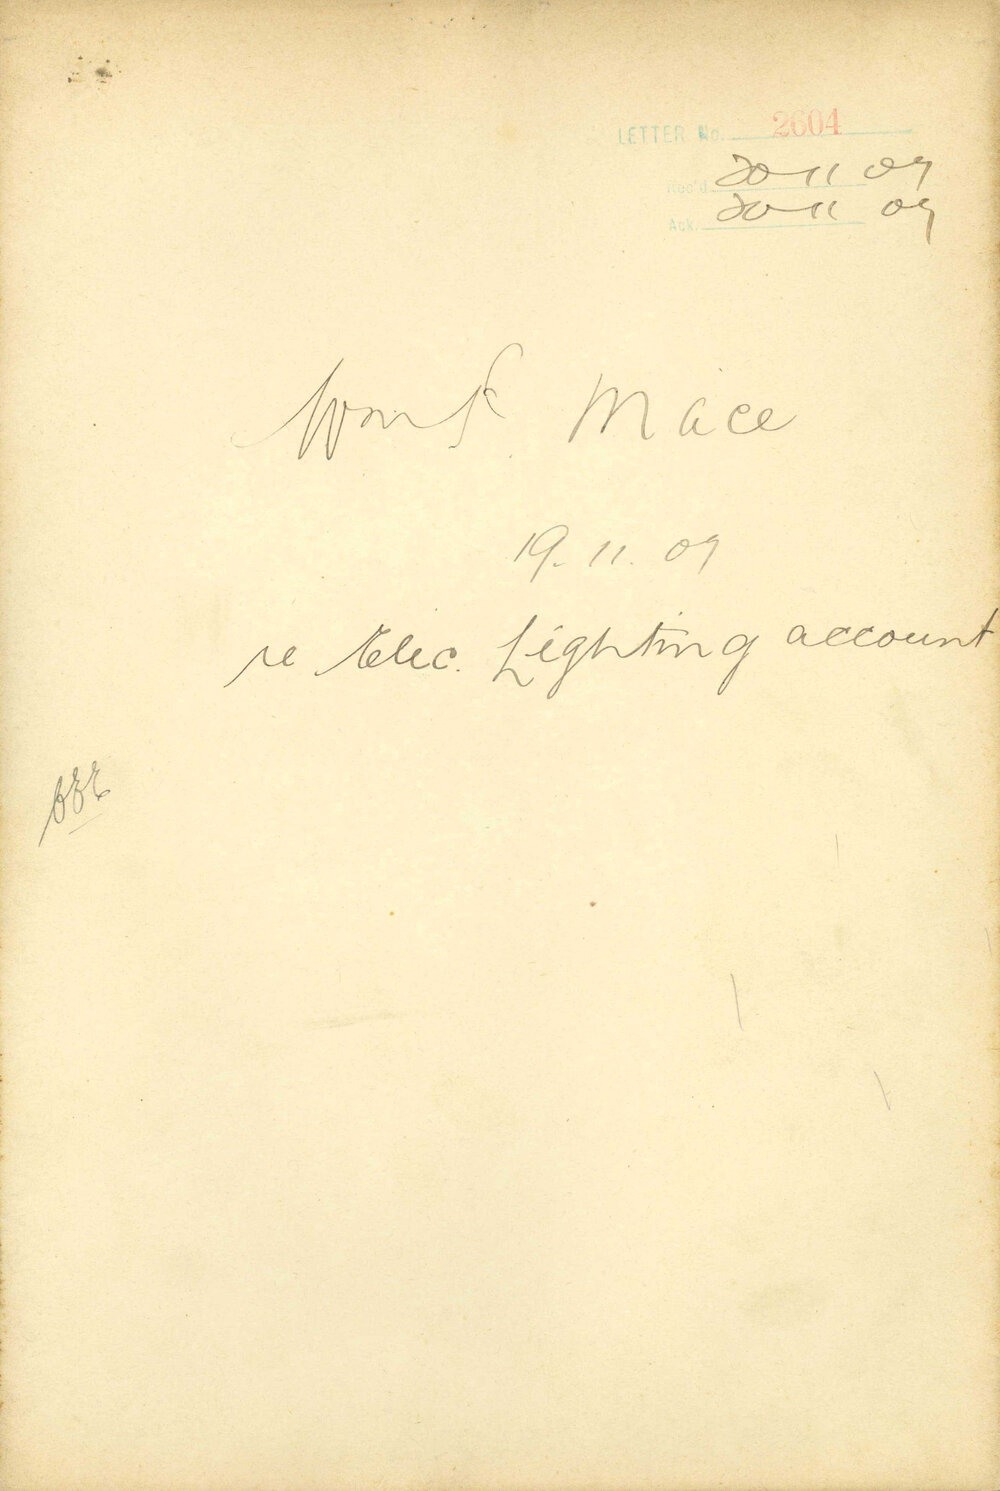 LETTER No. 2604
Rec'd. 20 11 07
Ack. 20 11 07
Mace
19. 11. 07
re Elec. Lighting account